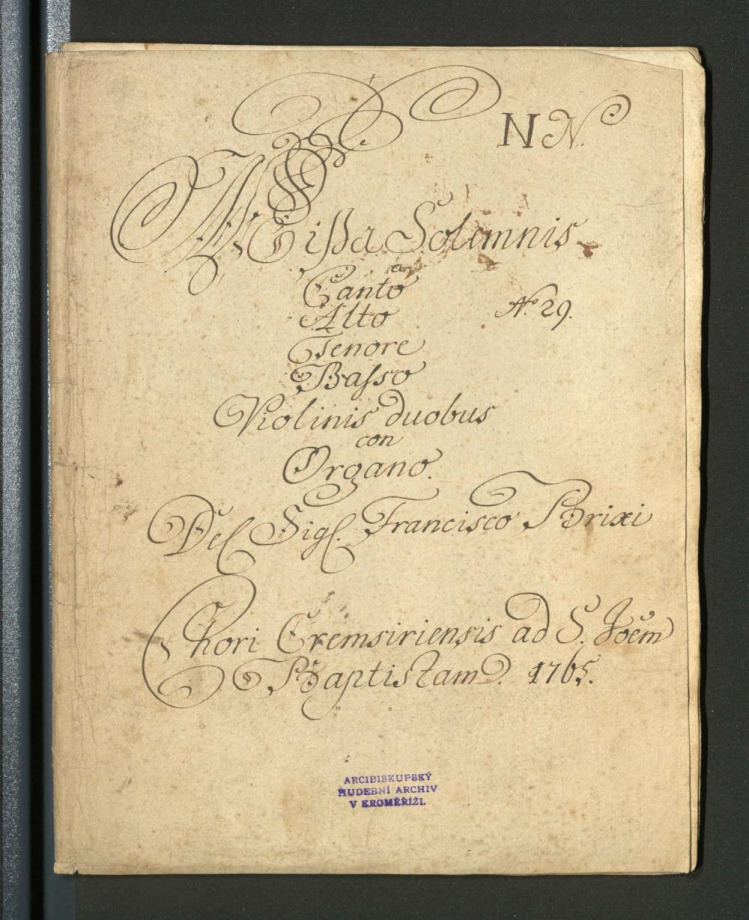 N N.
Missa Solemnis
a
Canto
Alto
No 29.
Tenore
Basso
Violinis duobus
con
Organo.
Del Sigl. Francisco Brixi
Chori Cremsiriensis ad S. Joẽm
Baptistam. 1765.
ARCIBISKUPSKÝ
HUDEBNÍ ARCHIV
V KROMĚŘÍŽI.